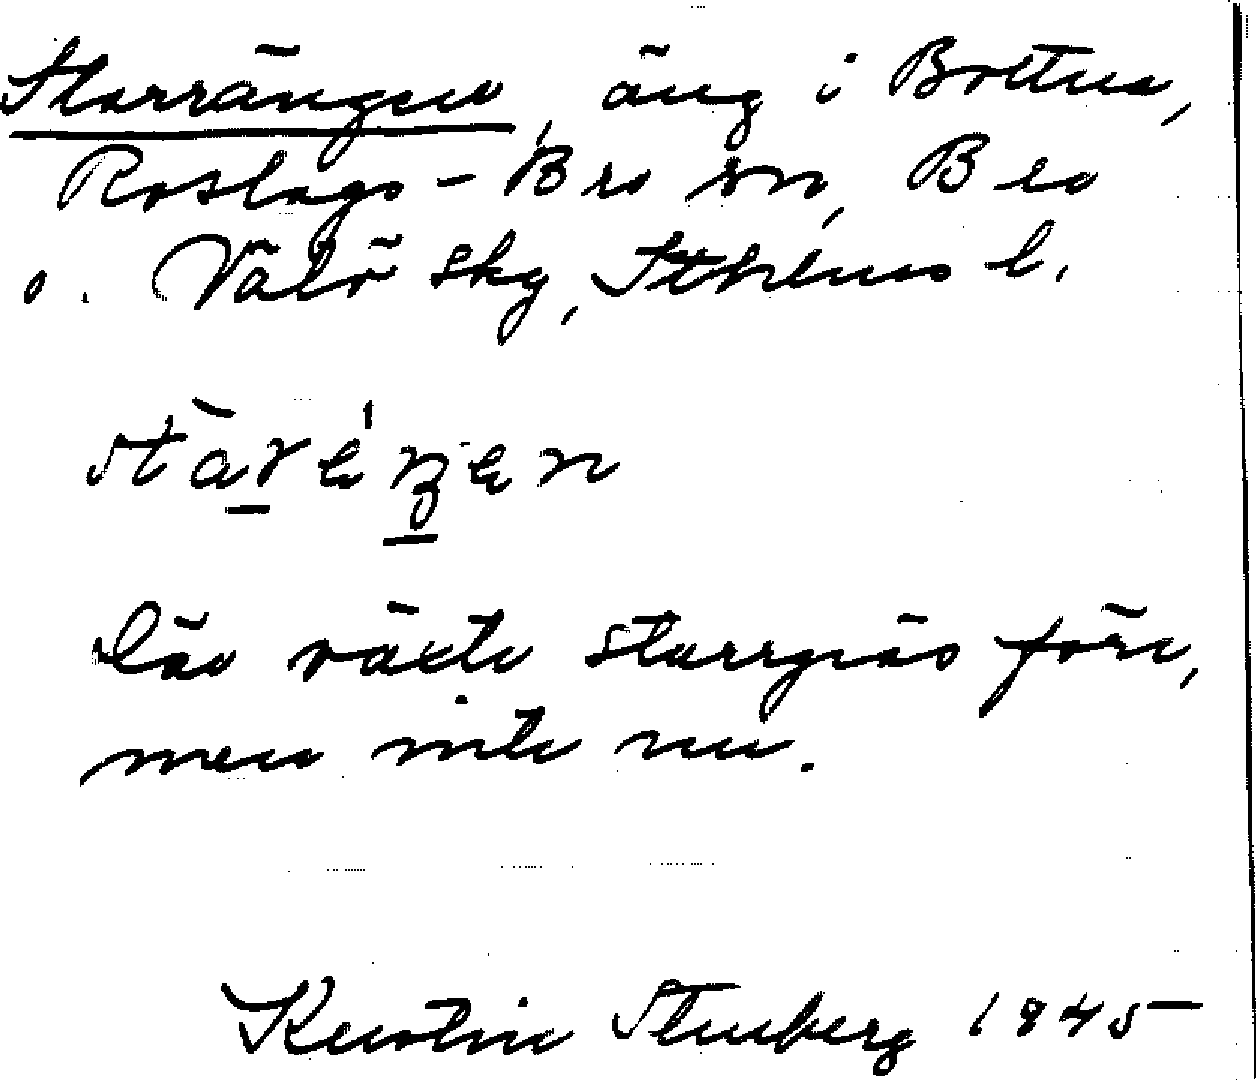 Starrängen, äng i Bottna,
Roslags-Bro sn, Bro
o. Vätö skg, Sthlms l.
Där växte starrgräs förr,
men inte nu.
Kerstin Stenberg 1945